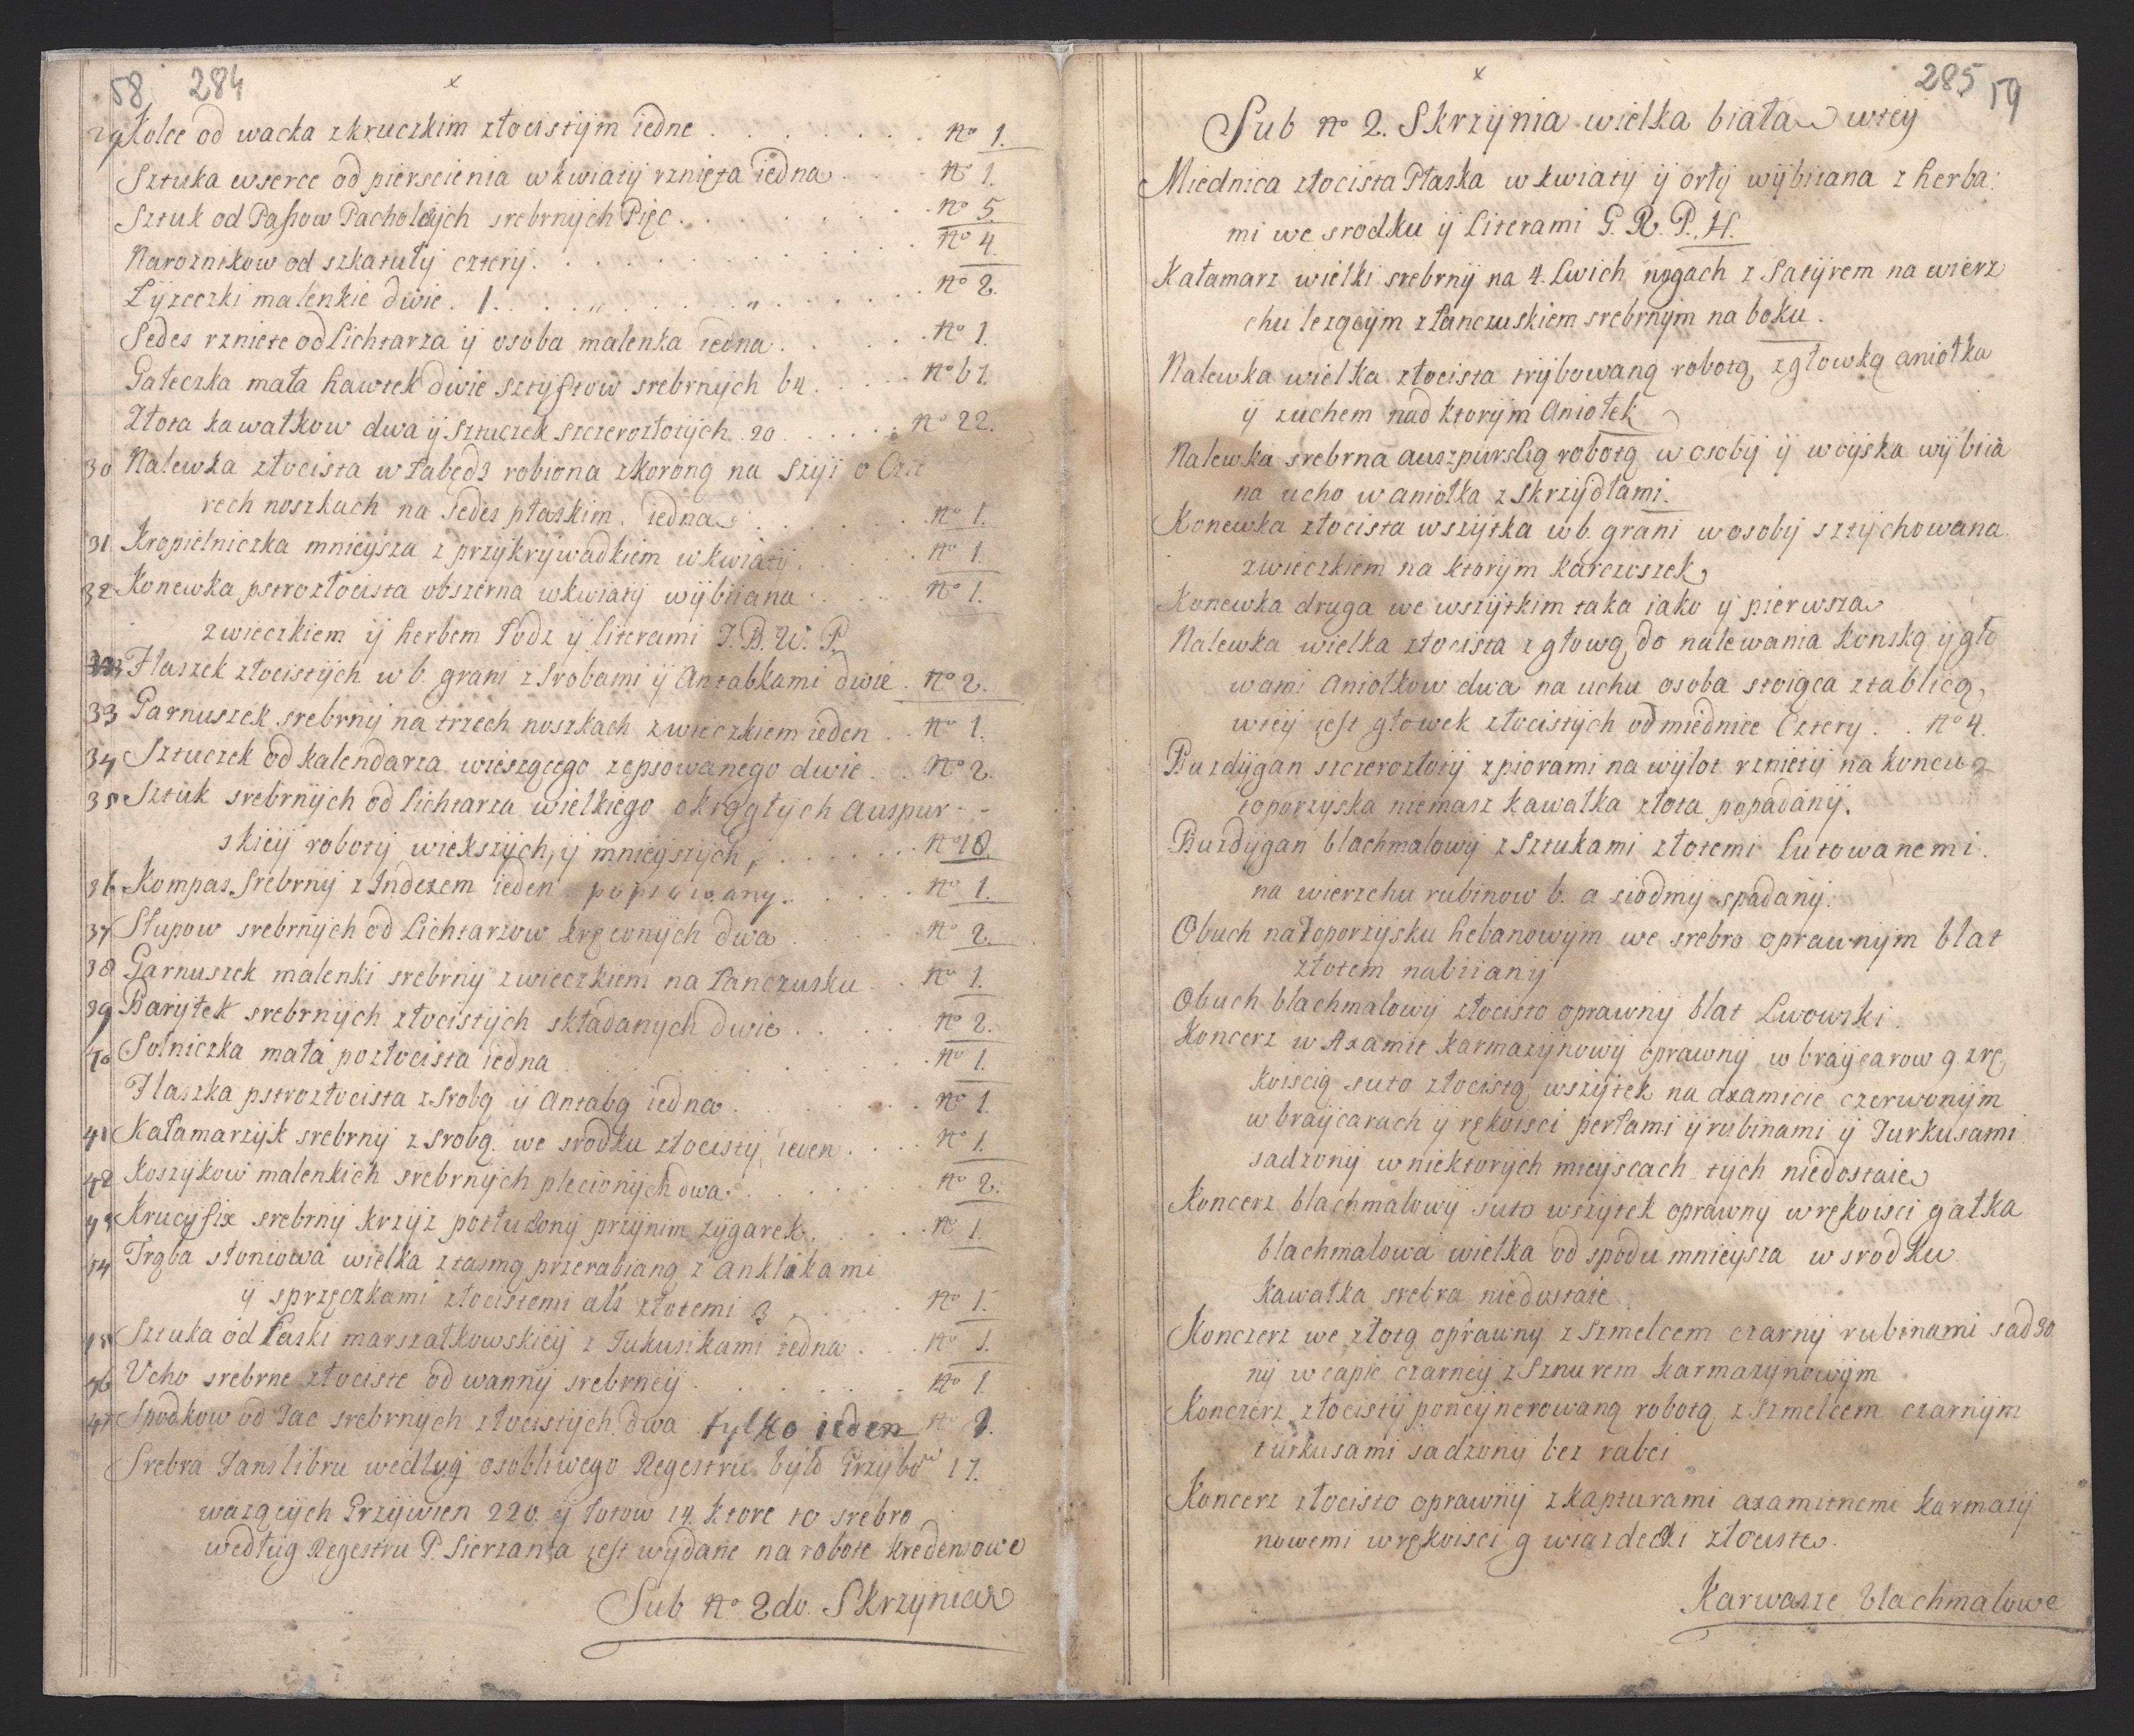 58. 284
x
29 Kolce od wacka z kruczkim złocistym iedne . . . . . . . No 1.
Sztuka w serce od pierscienia w kwiaty rznięta iedna . . . No 1.
Sztuk od Passow Pacholczych srebrnych Pięc . . . . . . No 5.
Naroznikow od szkatuły cztery . . . . . . . . No 4.
Łyzeczki malenkie dwie . 1 . . . „ . . . „ . . . . No 2.
Sedes rzniete od Lichtarza y osoba malenka iedna . . . . No 1.
Gałeczka mała hawtek dwie sztyftow srebrnych 64 . . . . No 67.
Złota kawałkow dwa y Sztuczek szczerozłotych . 20 . . . . . . No 22.
30 Nalewka złocista w Łabędz robiona z koroną na szyi o Czte
rech noszkach na Sedes płaskim . iedna . . . . . No 1.
31 Kropielniczka mnieysza z przykrywadkiem w kwiaty . . . . No 1.
32 Konewka pstrozłocista obszerna w kwiaty wybiiana . . . . No 1.
z wieczkiem y herbem Łodz y literami J. B. W. P.
Flaszek złocistych w 6. grani z Srobami y Antabkami dwie . No 2.
33 Garnuszek srebrny na trzech noszkach z wieczkiem ieden . . No 1.
34 Sztuczek od kalendarza wieszącego zepsowanego dwie . . No 2.
35 Sztuk srebrnych od lichtarza wielkiego okrągłych Auspur - -
skiey roboty wiekszych, y mnieyszych . . . . . . No 18.
36 Kompas Srebrny z Indexem ieden popsowany . . . . . No 1.
37 Słupow srebrnych od Lichtarzow kręconych dwa . . . . . No 2.
38 Garnuszek malenki srebrny z wieczkiem na Łanczusku . . No 1.
39 Baryłek srebrnych złocistych składanych dwie . . . . No 2.
40 Solniczka mała pozłocista iedna . . . . . . . . No 1.
Flaszka pstrozłocista z Srobą y Antabą iedna . . . . . . . No 1.
41 Kałamarzyk srebrny z Srobą. we srodku złocisty ieden . . . . No 1.
42 Koszykow malenkich srebrnych plecionych dwa . . . . . . No 2.
43 Krucyfix srebrny krzyz potłuczony przynim zygarek . . . . . No 1.
44 Trąba słoniowa wielka z tasmą przerabianą z anklakami
y sprzęczkami złocistemi als złotemi 3 . . . . . No 1.
45 Sztuka od Laski marszałkowskiey z Tukusikami iedna . . . No 1.
46 Ucho srebrne złociste od wanny srebrney . . . . . . . No 1.
47 Spodkow od Tac srebrnych złocistych dwa tylko ieden No 1.
Srebra Fanslibru według osobliwego Regestru było Grzybow 17.
wazących Grzywien 220. y łotow 14. ktore to srebro
według Regestru P. Sierzanta iest wydane na robote kredensowe
Sub No 2do. Skrzynia
285 59
x
Sub No 2. Skrzynia wielka biała w tey
Miednica złocista Płaska w kwiaty y orły wybiiana z herba:
mi we srodku y Literami G. R. P. H.
Kałamarz wielki srebrny na 4. Lwich nogach z Satyrem na wierz
chu lezącym z łanczuskiem srebrnym na boku .
Nalewka wielka złocista trybowaną robotą, z głowką aniołka
y zuchem nad ktorym Aniołek
Nalewka srebrna auszpurską robotą w osoby y woyska wybiia
na ucho w aniołka z skrzydłami.
Konewka złocista wszytka w 6. grani w osoby sztychowana.
z wieczkiem na ktorym karczoszek
Konewka druga we wszytkim taka iako y pierwsza
Nalewka wielka złocista z głową do nalewania konską y gło
wami Aniołkow dwa na uchu osoba stoiąca z tablicą,
w tey iest głowek złocistych od miednice Cztery . . No 4.
Buzdygan szczerozłoty z piorami na wylot rznięty na koncu
toporzyska niemasz kawałka złota popadany.
Buzdygan blachmalowy z Sztukami złotemi Lutowanemi.
na wierzchu rubinow 6. a siodmy spadany.
Obuch na Toporzysku hebanowym we srebro oprawnym blat
złotem nabiiany
Obuch blachmalowy złocisto oprawny blat Lwowski.
Koncerz w Axamit karmazynowy oprawny w braycarow 9. z rę
koiscią suto złocistą wszytek na axamicie czerwonym
w braycarach y rękoisci perłami y rubinami y Turkusami
sadzony w niektorych mieyscach tych niedostaie
Koncerz blachmalowy suto wszytek oprawny w rękoisci gałka
blachmalowa wielka od spodu mnieysza w srodku
kawałka srebra niedostaie
Konczerz we złotą oprawny z Szmelcem czarny rubinami sadzo
ny w capie czarney z Sznurem karmazynowym
Konczerz złocisty poncynerowaną robotą z Szmelcem czarnym
turkusami sadzony bez rabci
Koncerz złocisto oprawny z kapturami axamitnemi karmazy
nowemi w rękoisci gwiazdecki złociste.
Karwasze blachmalowe